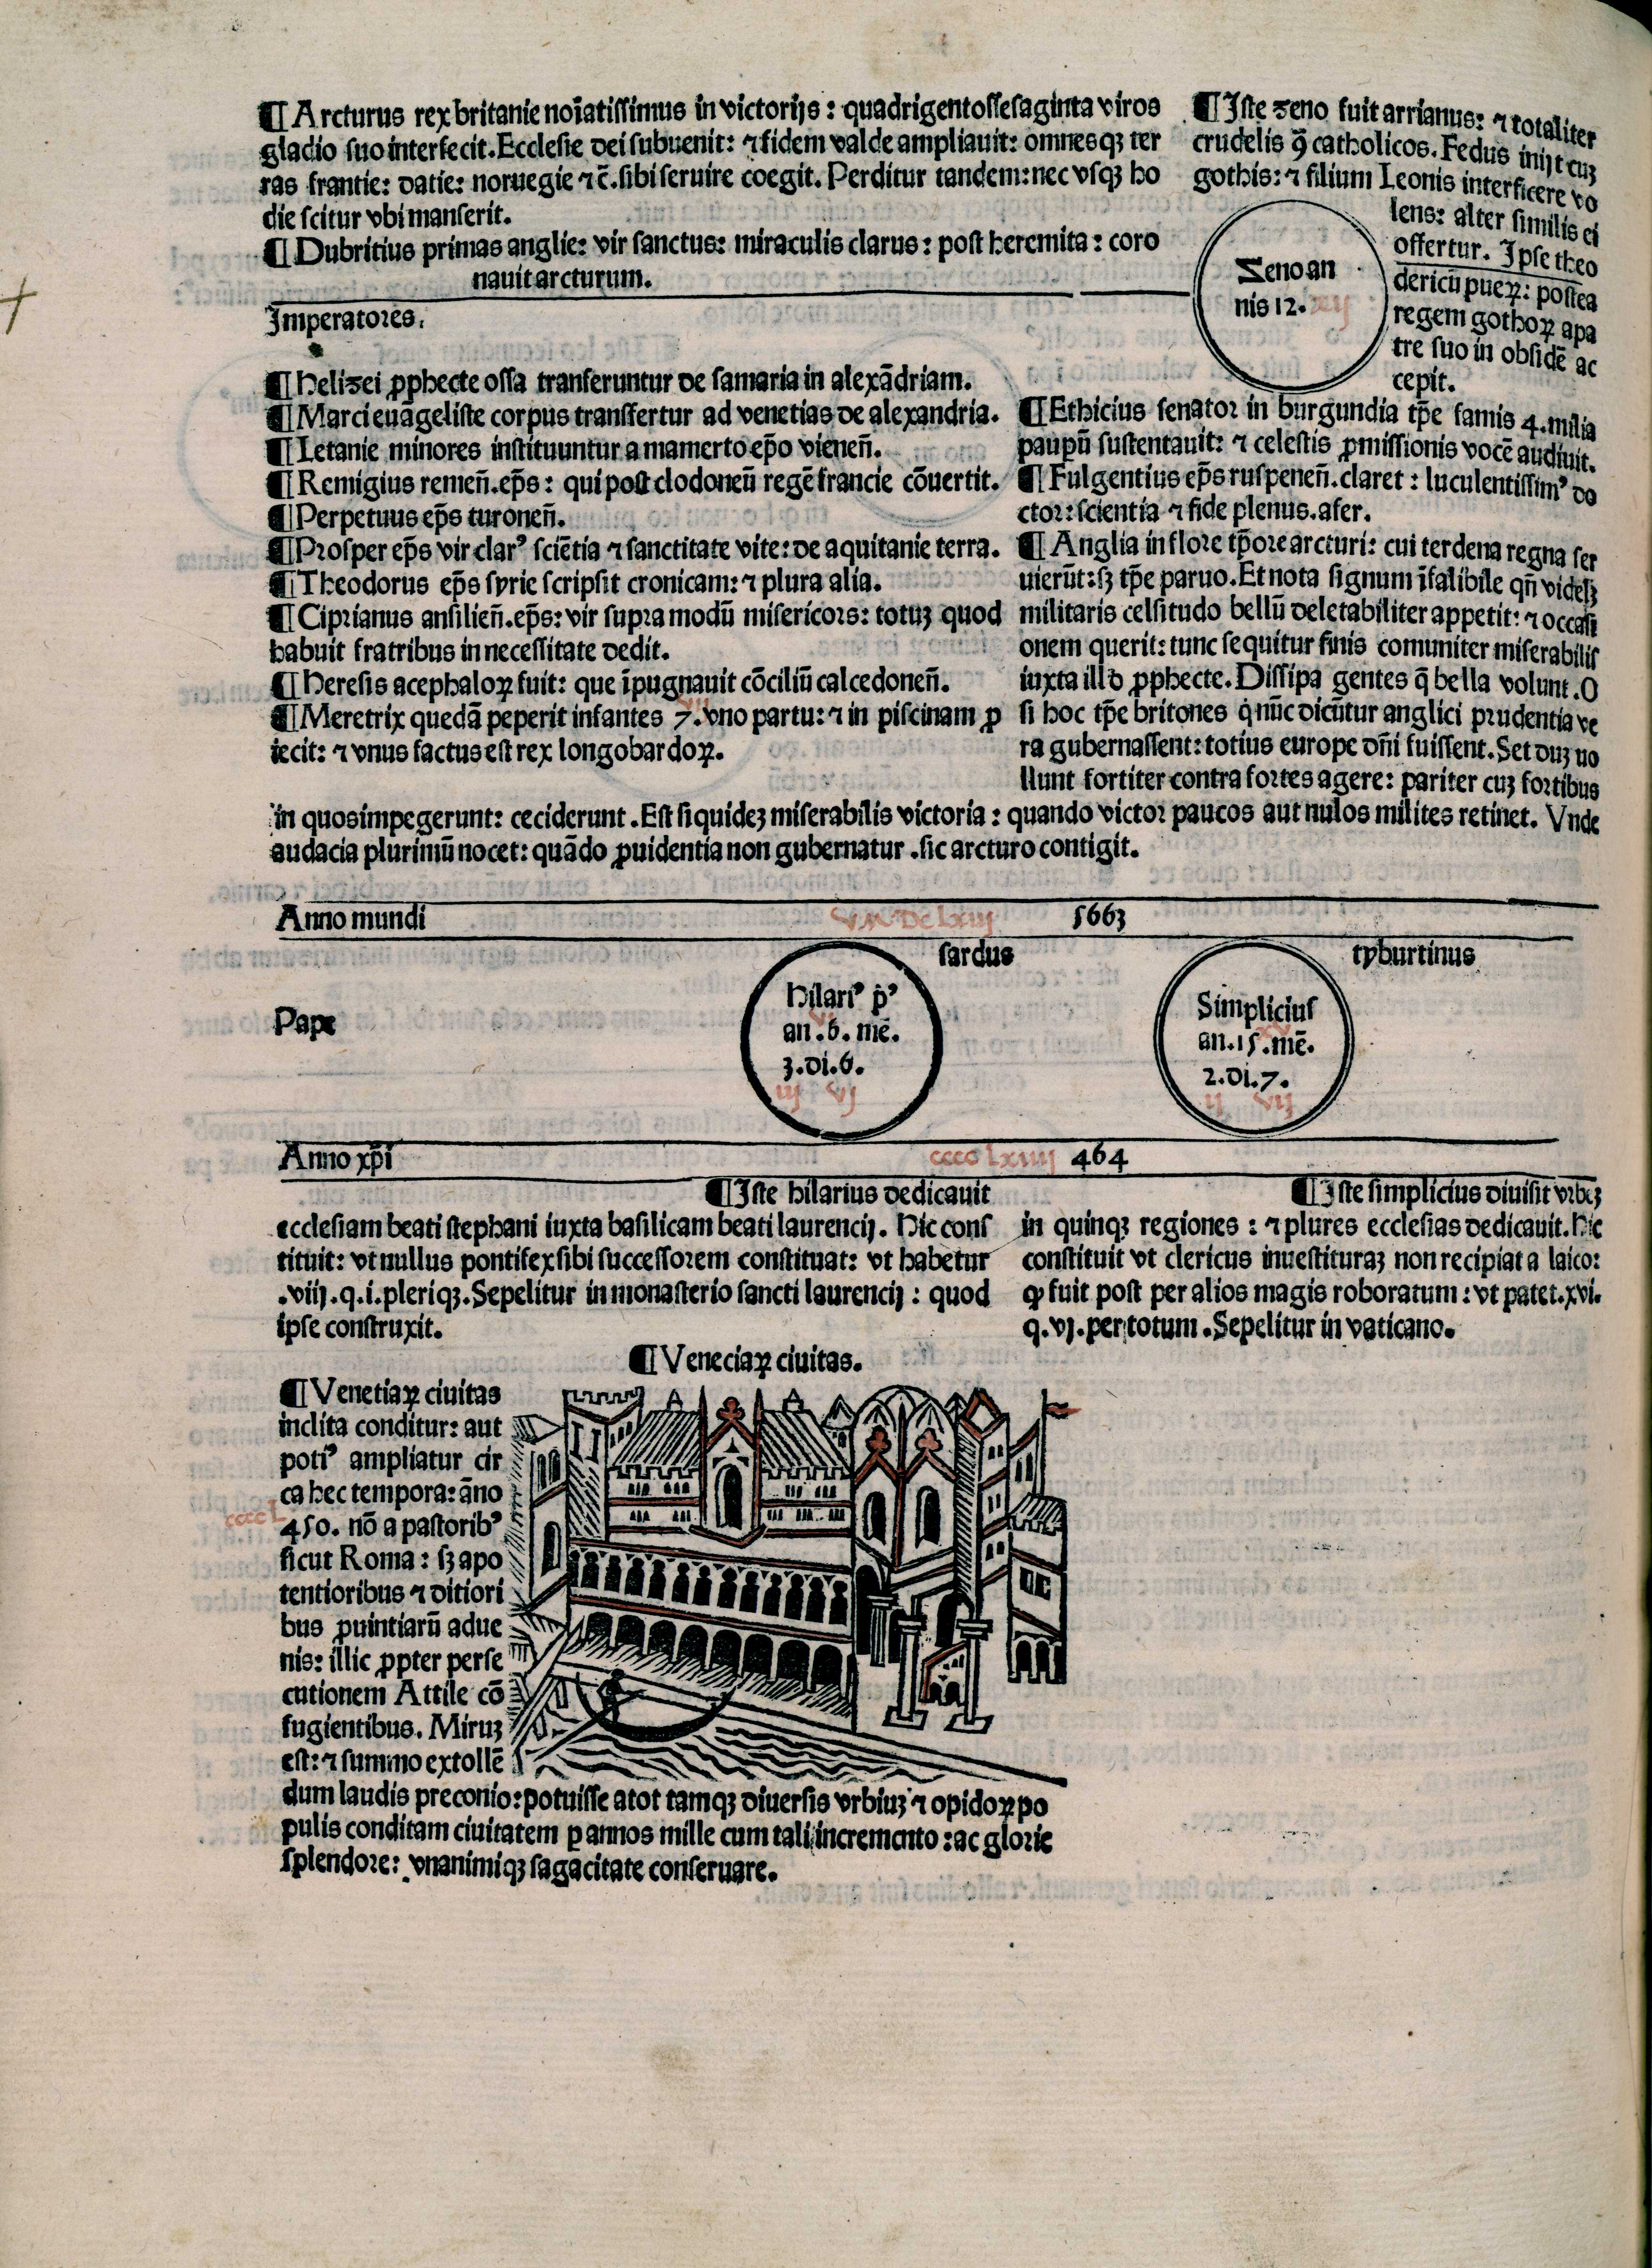 ¶ Arcturus rex britanie noīatissimus in victorijs : quadrigentossesaginta viros
gladio suo interfecit. Ecclesie dei subuenit: ⁊ fidem valde ampliauit: omnesqꝫ ter
ras frantie: datie: noruegie ⁊ c̄. sibi seruire coegit. Perditur tandem: nec vsqꝫ ho
die scitur vbi manserit.
¶ Dubritius primas anglie: vir sanctus: miraculis clarus : post heremita : coro
nauit arcturum.
¶ Iste zeno fuit arrianus: ⁊ totaliter
crudelis ꝯ catholicos. Fedus inijt cuꝫ
gothis: ⁊ filium Leonis interficere vo
lens: alter similis ei
offertur. Ipse theo
dericū pueꝝ: postea
regem gothoꝝ a pa
tre suo in obsidē ac
cepit.
Zeno an
nis 12. xij
Imperatores.
¶ Helizei ꝓphecte ossa transeruntur de samaria in alexādriam.
¶ Marci euāgeliste corpus transfertur ad venetias de alexandria.
¶ Letanie minores instituuntur a mamerto ep̄o vieneñ.
¶ Remigius remeñ. ep̄s : qui post clodoneū regē francie cōuertit.
¶ Perpetuus ep̄s turoneñ.
¶ Prosper ep̄s vir clarꝰ sciētia ⁊ sanctitate vite: de aquitanie terra.
¶ Theodorus ep̄s syrie scripsit cronicam: ⁊ plura alia.
¶ Ciprianus ansilieñ. ep̄s: vir supra modū misericors: totuꝫ quod
habuit fratribus in necessitate dedit.
¶ Heresis acephaloꝝ fuit: que īpugnauit cōciliū calcedoneñ.
¶ Meretrix quedā peperit infantes 7. vno partu: ⁊ in piscinam ꝓ
iecit: ⁊ vnus factus est rex longobardoꝝ.
¶ Ethicius senator in burgundia tp̄e famis 4. milia
paupū sustentauit: ⁊ celestis ꝓmissionis vocē audiuit.
¶ Fulgentius ep̄s ruspeneñ. claret : luculentissimꝰ do
ctor: scientia ⁊ fide plenus. afer.
¶ Anglia in flore tp̄ore arcturi: cui ter dena regna ser
uierūt: sꝫ tp̄e paruo. Et nota signum īfalibile qñ videlꝫ
militaris celsitudo bellū deletabiliter appetit: ⁊ occasi
onem querit: tunc sequitur finis comuniter miserabilis
iuxta illd ꝓphecte. Dissipa gentes q̄ bella volunt. O
si hoc tp̄e britones q̇ nūc dicūtur anglici prudentia ve
ra gubernassent: totius europe dñi fuissent. Set duꝫ no
llunt fortiter contra fortes agere: pariter cuꝫ fortibus
in quos impegerunt: ceciderunt. Est siquideꝫ miserabilis victoria : quando victor paucos aut nulos milites retinet. Vnde
audacia plurimū nocet: quādo ꝓuidentia non gubernatur. sic arcturo contigit.
Anno mundi 5663
Pape
sardus
Hilariꝰ p̄ꝰ
an. 6. mē.
3. di. 6.
iij vj
tyburtinus
Simplicius
an. 15. mē.
2. di. 7.
ij vij
Anno xp̄i cccc lxiiij 464
¶ Iste hilarius dedicauit
ecclesiam beati stephani iuxta basilicam beati laurencij. Hic cons
tituit: vt nullus pontifex sibi successorem constituat: vt habetur
.viij. q. i. pleriqꝫ. Sepelitur in monasterio sancti laurencij : quod
ipse construxit.
¶ Iste simplicius diuisit vrbeꝫ
in quinqꝫ regiones : ⁊ plures ecclesias dedicauit. Hic
constituit vt clericus inuestituraꝫ non recipiat a laico:
ꝙ fuit post per alios magis roboratum : vt patet. xvi.
q. vj. per totum. Sepelitur in vaticano.
¶ Veneciaꝝ ciuitas.
¶ Venetiaꝝ ciuitas
inclita conditur: aut
potiꝰ ampliatur cir
ca hec tempora: āno
cccc L
450. nō a pastoribꝰ
sicut Roma : sꝫ a po
tentioribus ⁊ ditiori
bus ꝓuintiarū adue
nis: illic ꝓpter perse
cutionem Attile cō
fugientibus. Miruꝫ
est: ⁊ summo extollē
dum laudis preconio: potuisse a tot tamqꝫ diuersis vrbiuꝫ ⁊ opidoꝝ po
pulis conditam ciuitatem ꝑ annos mille cum tali incremento : ac glorie
splendore: vnanimiqꝫ sagacitate conseruare.